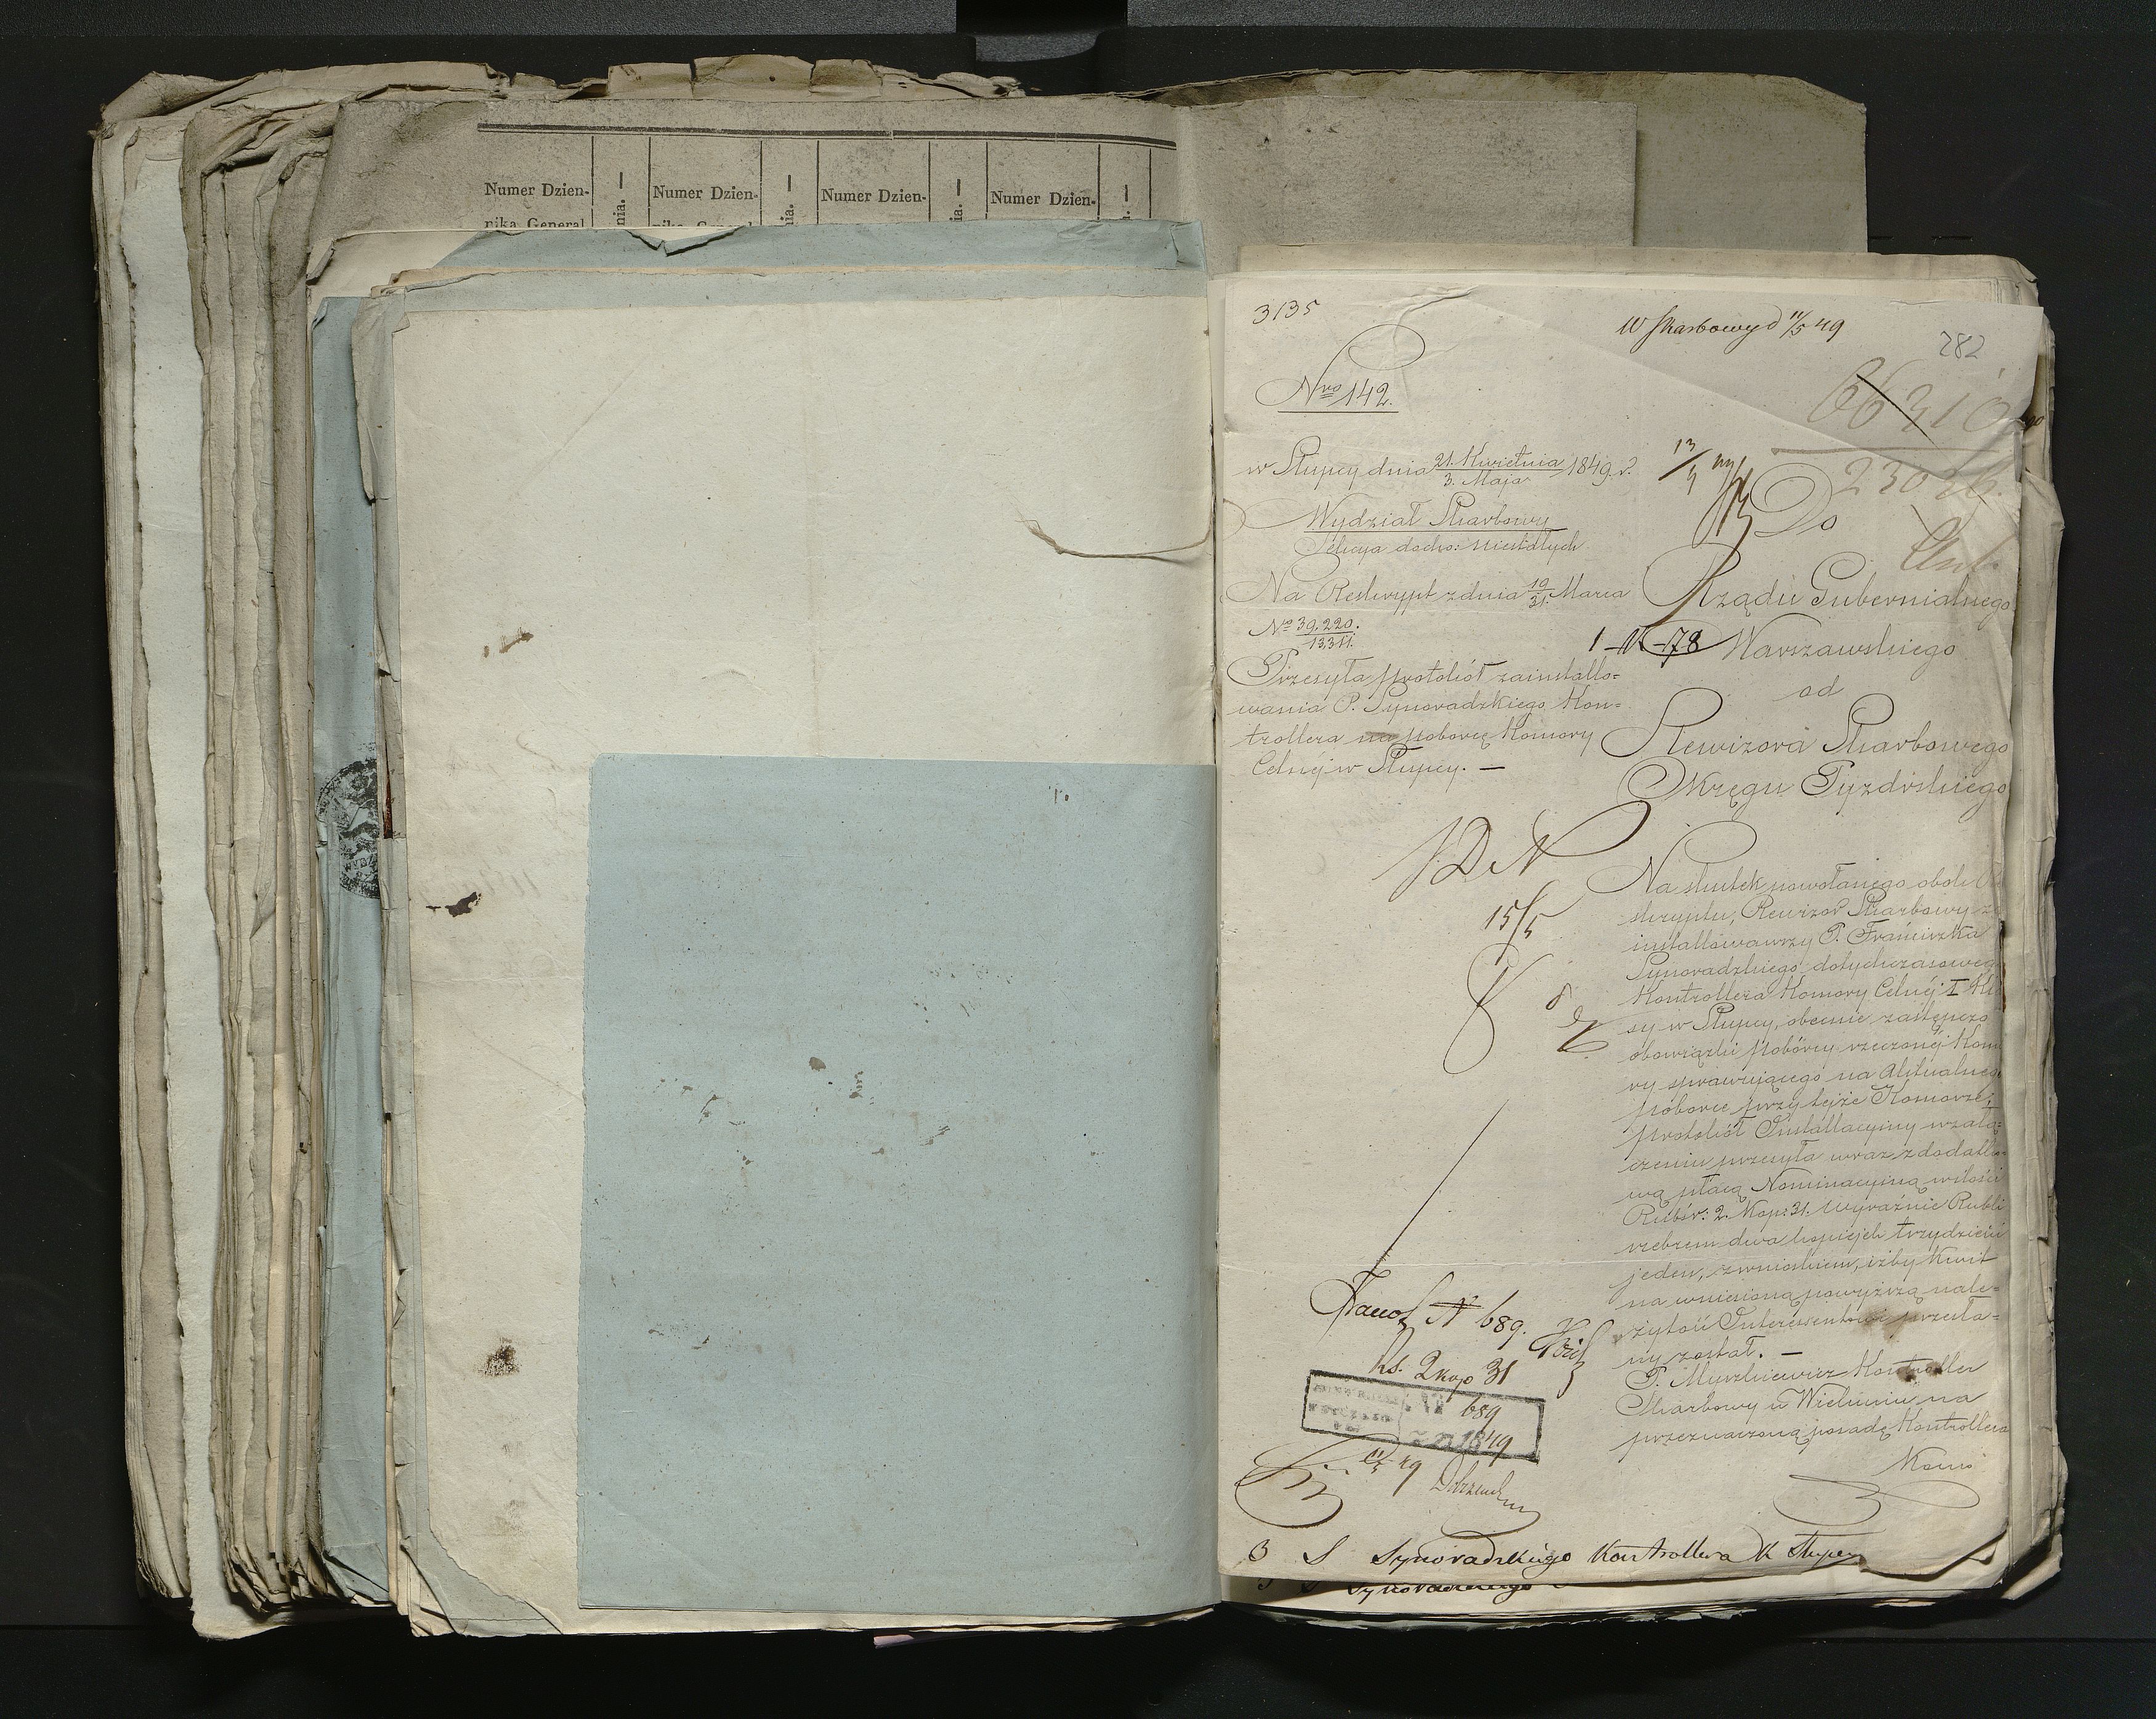 Numer Dzien- nia. Numer Dzien- nia. Numer Dzien- Numer Dzien-
nika General
3135
W Skarbowy d 11/5 49
282
Nro 142.
66310
w Słupcy dnia 21. Kwietnia / 3. Maja 1849. r.
13/5
230
Wydział Skarbowy
Sekcya docho: niestałych
Do
Na Reskrypt z dnia 19/31. Marca
Rządu Gubernialnego
No 39,220. / 13311.
1-IV-78
Warszawskiego
Przesyła protokół zainstallo=
wania P. Synoradzkiego Kon=
trollera na poborcę Komory
Celnéj w Słupcy. —
od
Rewizora Skarbowego
Okręgu Pyzdrskiego
Na skutek powołanego obok Re
skryptu, Rewizor Skarbowy za
installowawszy P. Franciszka
Synoradzkiego dotychczasowego
Kontrollera Komory Celnéj I Kl
sy w Słupcy, obecnie zastępczo
obowiązki poborcy rzeczonéj Komo
ry sprawującego na Aktualnego
poborcę przy tejże Komorze;
protokół Installacyjny w załą=
czeniu przesyła wraz z dodatko=
wą płacą Nominacyjną w ilości
Rubsr: 2. Kop: 31. Wyraźnie Rubli
srebrem dwa kopiejek trzydzieści
jeden, z wnioskiem, iżby Kwit
na wniesioną powyższą nale=
żytość Interessentowi przesła=
ny został. —
P. Muszkiewicz Kontroller
Skarbowy w Wieluniu na
przeznaczoną posadę Kontrollera
Komo
15/5
N 689.
rs. 2 kop 31
689
1849
49
3 S Synoradzkiego Kontrollera K Słupcy